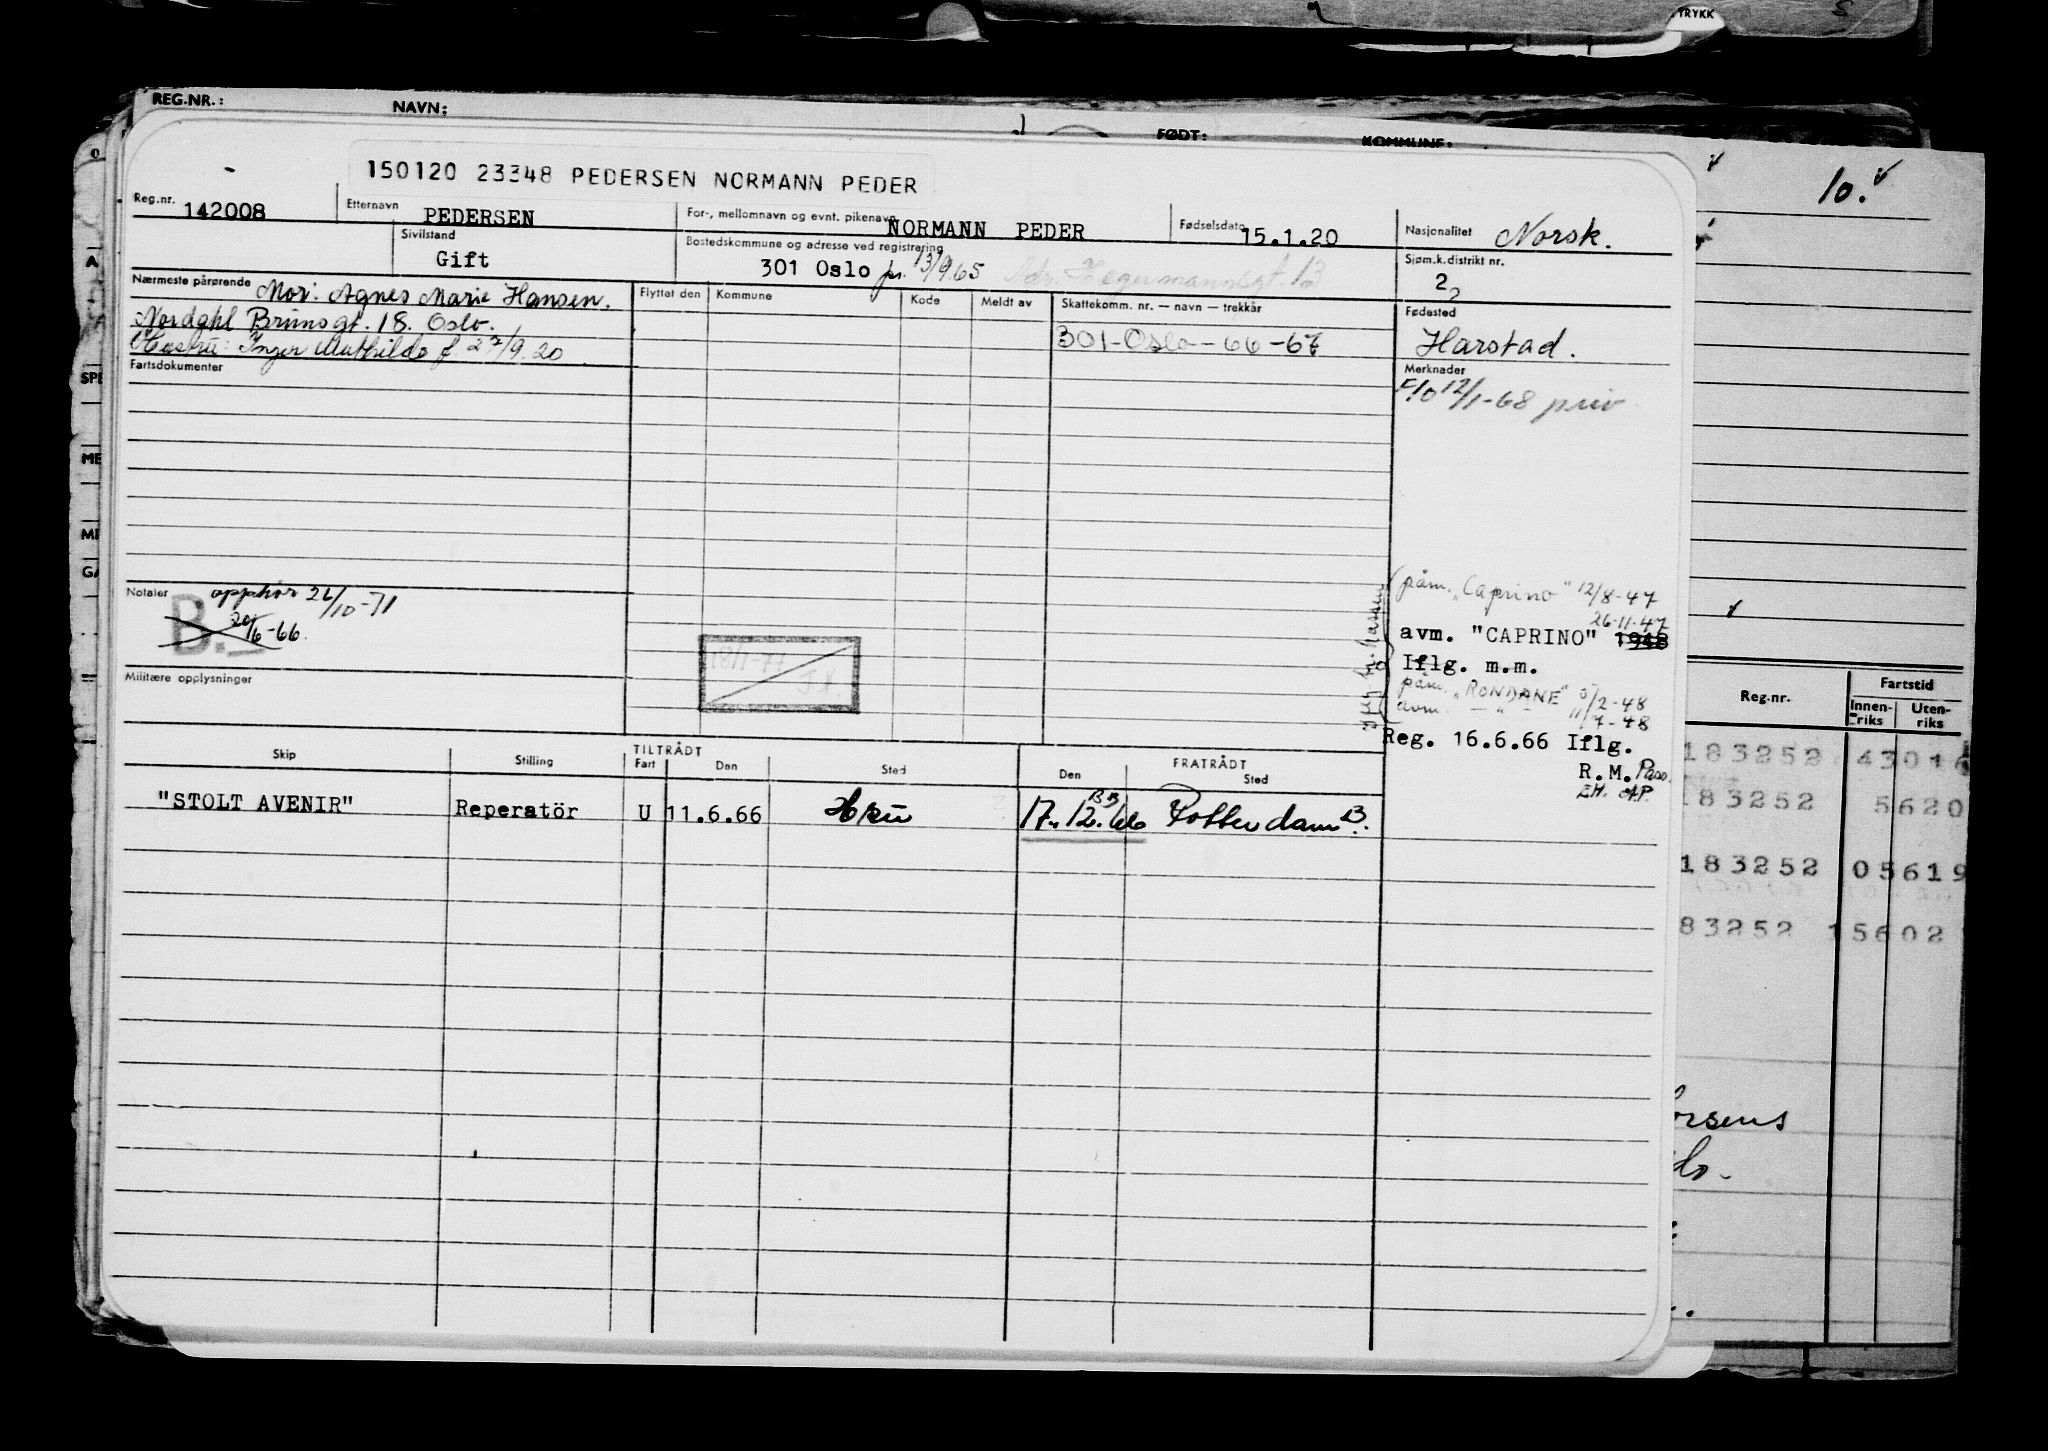 TRYKK
REG.NR.: NAVN: FØDT: KOMMUNE:
10.
150120 23348 PEDERSEN NORMANN PEDER
Reg.nr. 142008 Etternavn PEDERSEN For-, mellomnavn og evnt. pikenavn NORMANN PEDER Fødselsdato 15.1.20 Nasjonalitet Norsk.
Sivilstand Gift Bostedskommune og adresse ved registrering 301 Oslo pr. 13/9.65 Adr. Hegermannsgt. 13 Sjøm.k.distrikt nr. 2
Nærmeste pårørende Mor: Agnes Marie Hansen.
Nordahl Brunsgt. 18. Oslo.
Hustru: Inger Mathilde f 27/9.20
Flyttet den Kommune Kode Meldt av Skattekomm. nr. — navn — trekkår
301-Oslo-66-67
Fødested
Harstad.
Fartsdokumenter
Merknader
F/o 12/1-68 priv
Notater opphør 26/10-71
B. 24/6-66.
Militære opplysninger
18/1-77
J.N.
påm. "Caprino" 12/8-47
26-11-47
avm. "CAPRINO" 1948
Iflg. m.m.
påm. "RONDANE" 5/2-48
avm. — " — 11/7-48
Reg. 16.6.66 Iflg.
R.M. Pass.
Skip Stilling TILTRÅDT Fart Den Sted FRATRÅDT Den Sted
"STOLT AVENIR" Reperatör U 11.6.66 17.12.66 Rotterdam B.
Reg.nr. Fartstid
Innen-riks Uten-riks
183252 43016
183252 5620
183252 05619
83252 15602